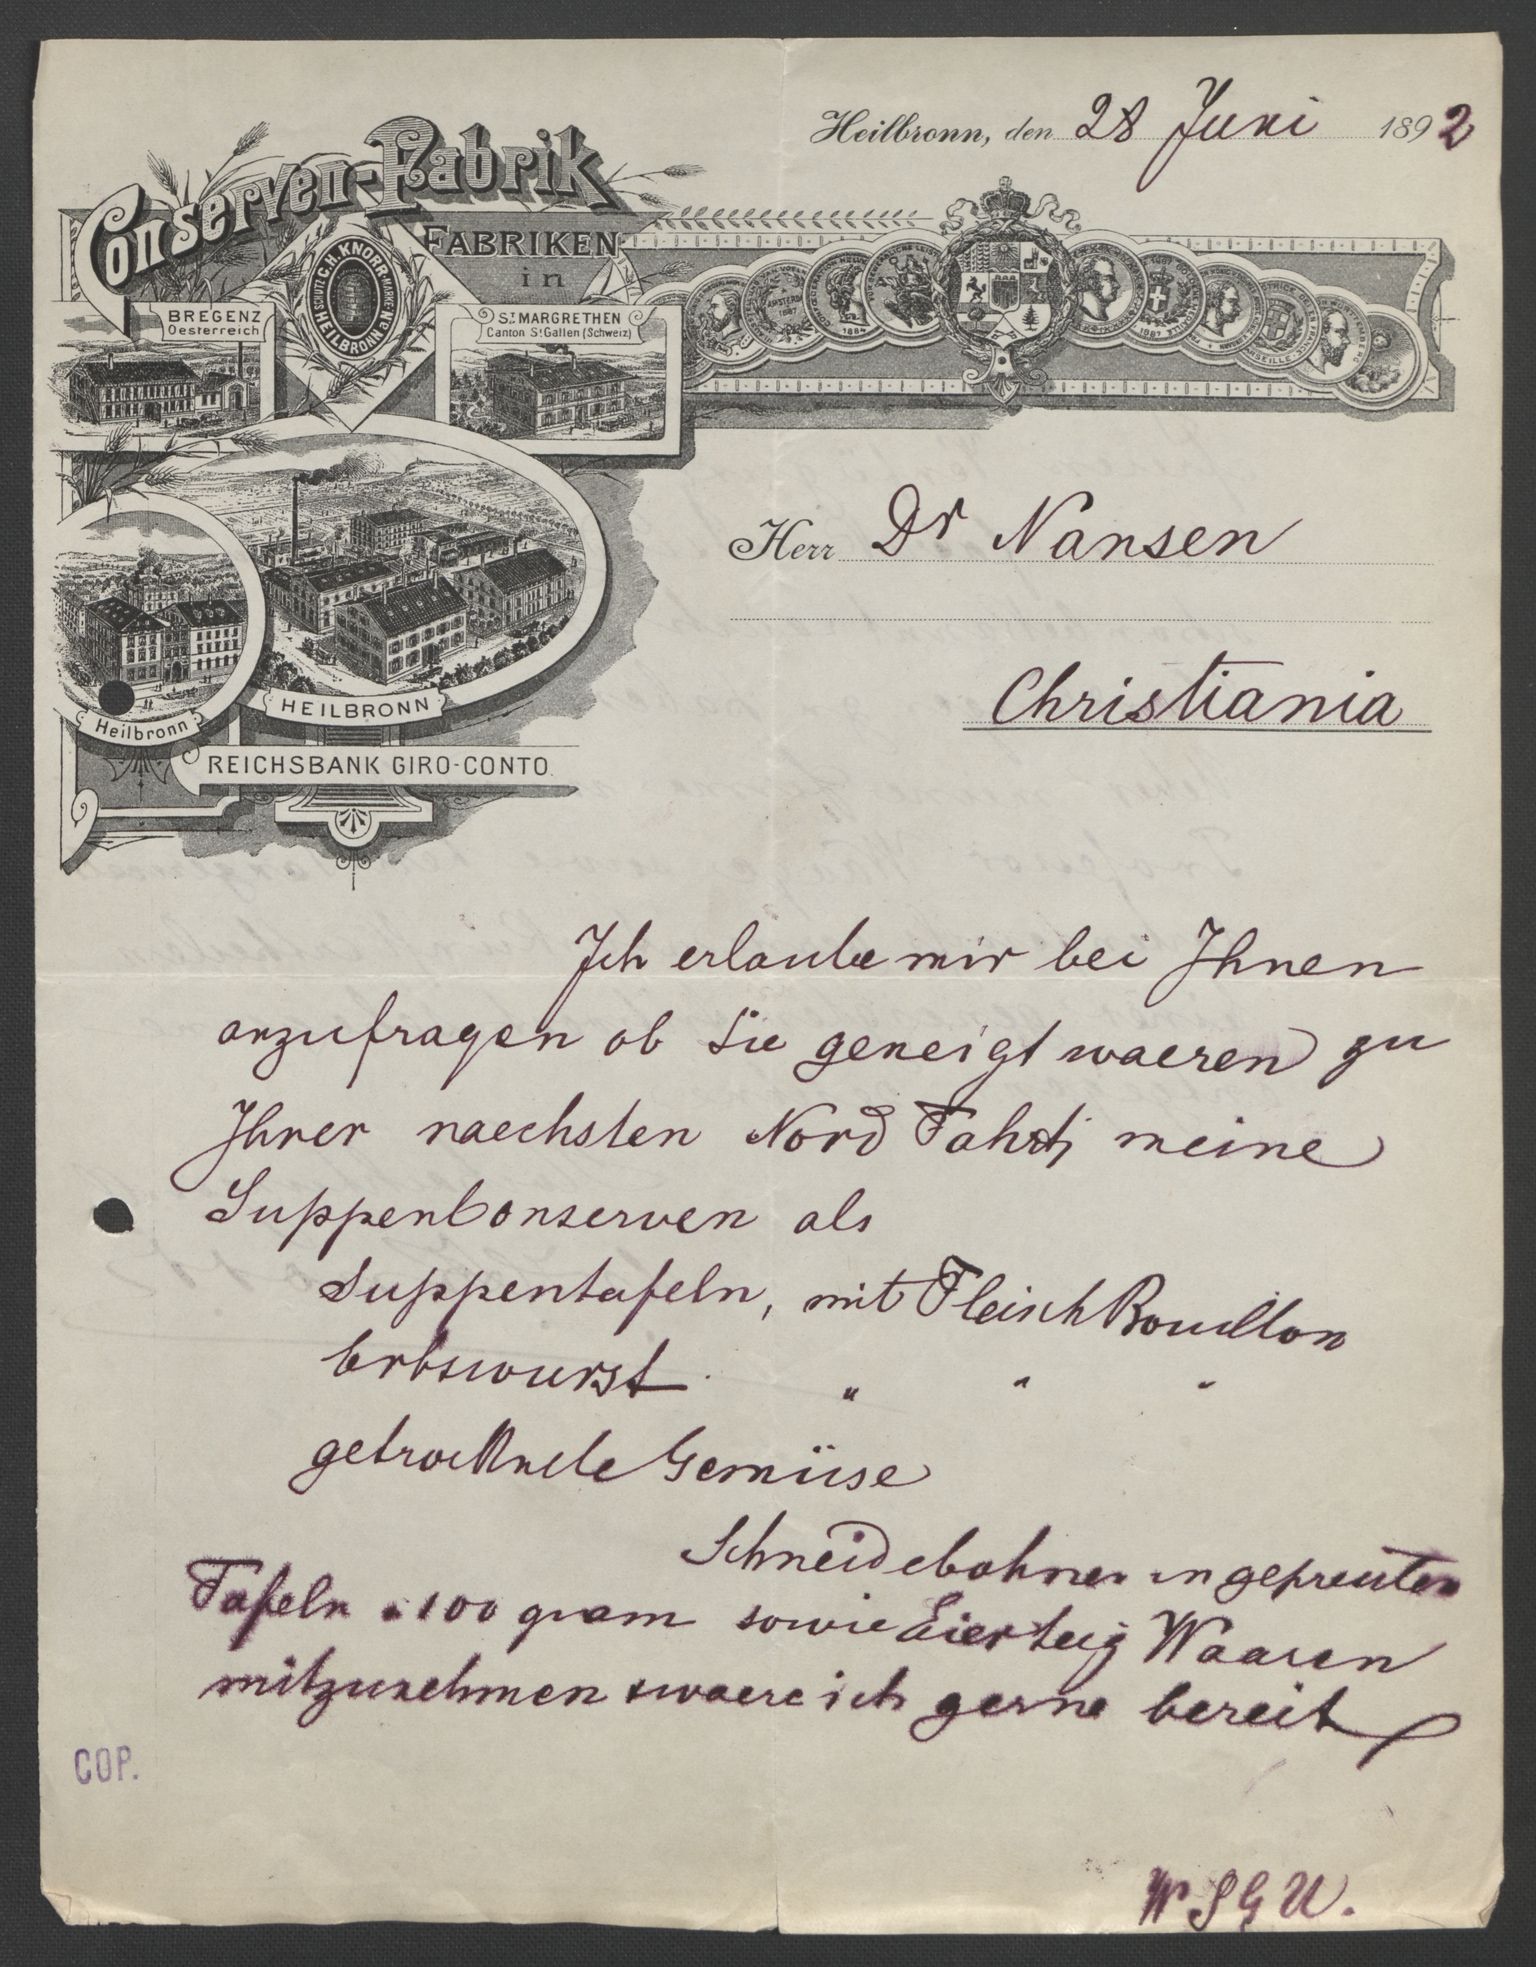 Heilbronn, den 28 Juni 1892
Conserven-Fabrik
FABRIKEN
in
SCHUTZ C.H. KNORR MARKE
HEILBRONN a/N
BREGENZ
Oesterreich
ST MARGRETHEN
Canton St Gallen (Schweiz)
Heilbronn
HEILBRONN
REICHSBANK GIRO-CONTO
Herr Dr Nansen
Christiania
Ich erlaube mir bei Ihnen
anzufragen ob Sie geneigt waeren zu
Ihrer naechsten Nord Fahrt meine
Suppenconserven als
Suppentafeln, mit Fleisch Bouillon
Erbswurst " " "
getrocknete Gemüse
Schneidebohnen in gepressten
Tafeln a 100 gram sowie Eierteig Waaren
mitzunehmen & waere ich gerne bereit
COP.
W S G U.